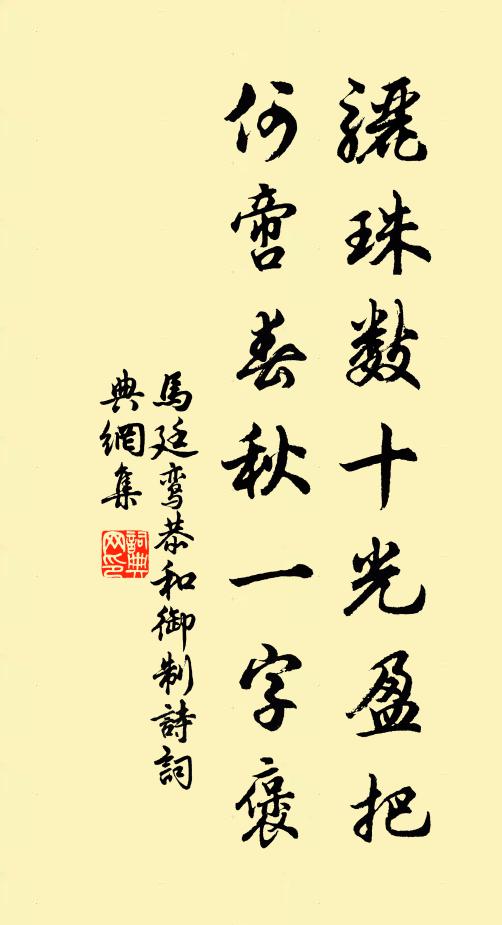 骊珠数十光盈把
何啻春秋一字褒
馬廷鸾恭和御制詩詞
典網集
詞典网印